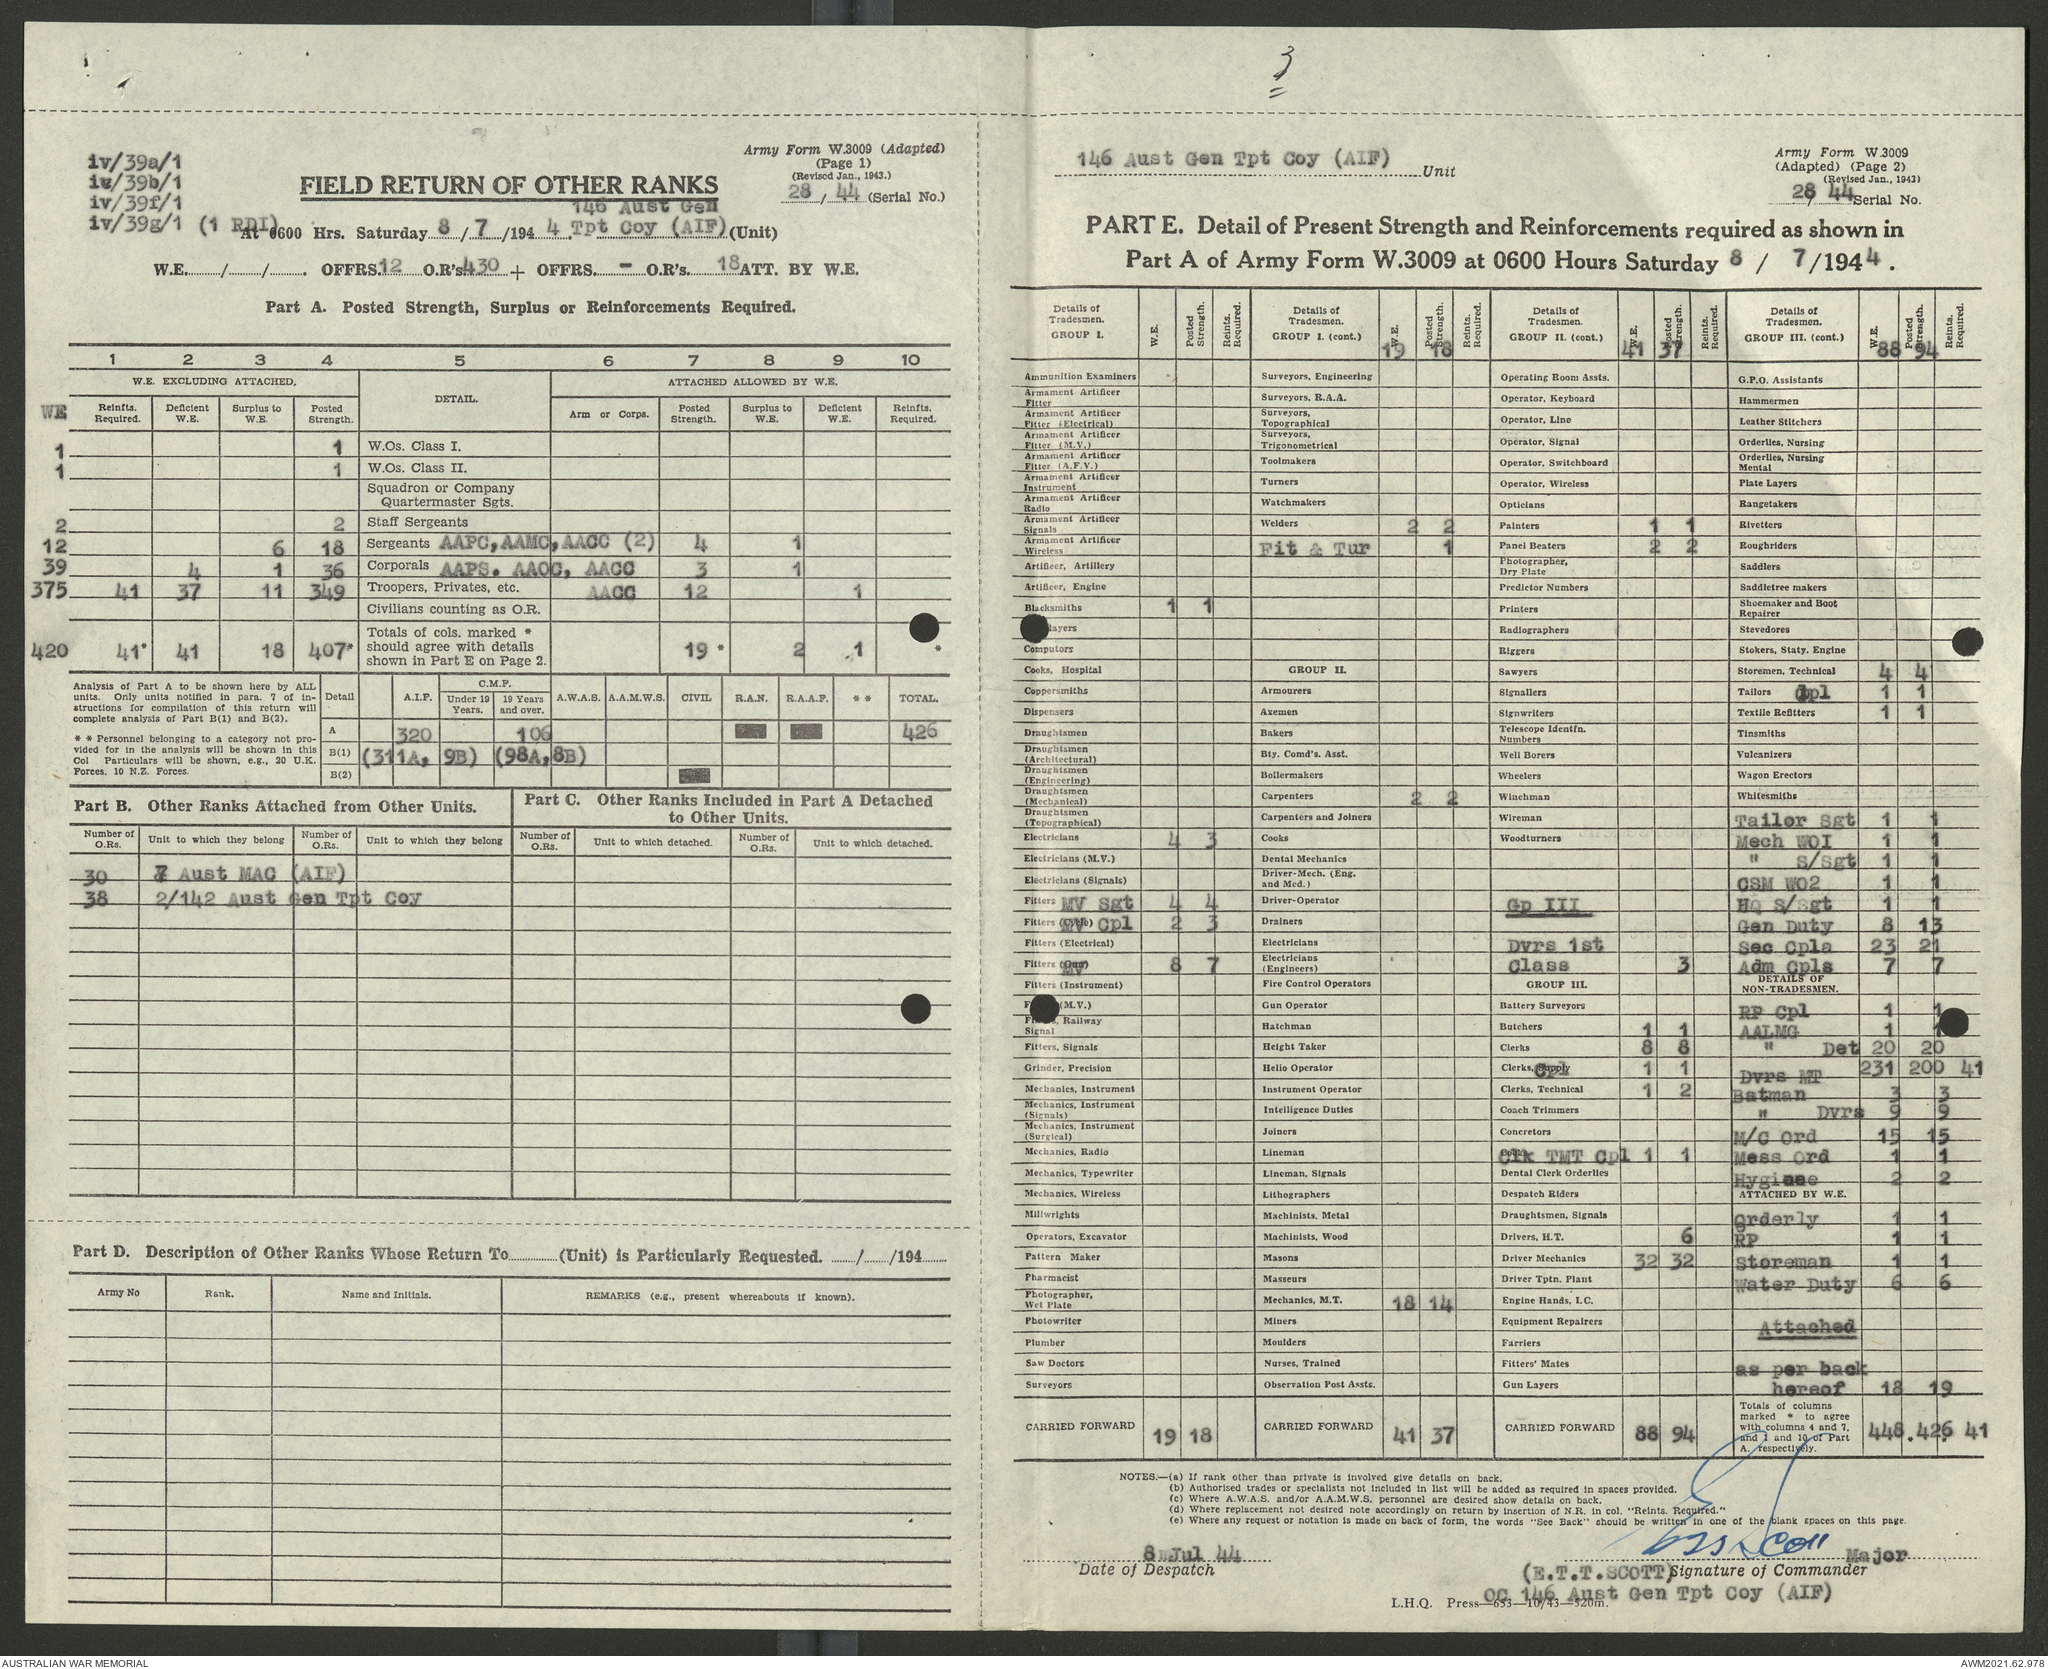 3
iv/39a/1
iv/39b/1
iv/39f/1
iv/39g/1 (1 RDI)
Army Form W.3009 (Adapted)
(Page 1)
(Revised Jan., 1943.)
28 / 44 (Serial No.)
FIELD RETURN OF OTHER RANKS
At 0600 Hrs. Saturday 8 / 7 /194 4 146 Aust Gen Tpt Coy (AIF) (Unit)
W.E. / / . OFFRS. 12 O.R's 430 + OFFRS. - O.R's. 18 ATT. BY W.E.
Part A. Posted Strength, Surplus or Reinforcements Required.
1 2 3 4 5 6 7 8 9 10
W.E. EXCLUDING ATTACHED. DETAIL. ATTACHED ALLOWED BY W.E.
WE Reinfts. Required. Deficient W.E. Surplus to W.E. Posted Strength. Arm or Corps. Posted Strength. Surplus to W.E. Deficient W.E. Reinfts. Required.
1 1 W.Os. Class I.
1 1 W.Os. Class II.
Squadron or Company Quartermaster Sgts.
2 2 Staff Sergeants
12 6 18 Sergeants AAPC, AAMC, AACC (2) 4 1
39 4 1 36 Corporals AAPS. AAOC, AACC 3 1
375 41 37 11 349 Troopers, Privates, etc. AACC 12 1
Civilians counting as O.R.
420 41* 41 18 407* Totals of cols. marked * should agree with details shown in Part E on Page 2. 19 * 2 1 *
Analysis of Part A to be shown here by ALL units. Only units notified in para. 7 of instructions for compilation of this return will complete analysis of Part B(1) and B(2).
* * Personnel belonging to a category not provided for in the analysis will be shown in this Col Particulars will be shown, e.g., 20 U.K. Forces, 10 N.Z. Forces.
Detail A.I.F. C.M.F. Under 19 Years. 19 Years and over. A.W.A.S. A.A.M.W.S. CIVIL R.A.N. R.A.A.F. * * TOTAL.
A 320 106 426
B(1) (311A, 9B) (98A, 8B)
B(2)
Part B. Other Ranks Attached from Other Units.
Number of O.Rs. Unit to which they belong Number of O.Rs. Unit to which they belong
30 7 Aust MAC (AIF)
38 2/142 Aust Gen Tpt Coy
Part C. Other Ranks Included in Part A Detached to Other Units.
Number of O.Rs. Unit to which detached. Number of O.Rs. Unit to which detached.
Part D. Description of Other Ranks Whose Return To (Unit) is Particularly Requested. / /194
Army No Rank. Name and Initials. REMARKS (e.g., present whereabouts if known).
146 Aust Gen Tpt Coy (AIF) Unit
Army Form W.3009
(Adapted) (Page 2)
(Revised Jan., 1943)
28 44 Serial No.
PART E. Detail of Present Strength and Reinforcements required as shown in
Part A of Army Form W.3009 at 0600 Hours Saturday 8 / 7 /194 4 .
Details of Tradesmen. GROUP I. W.E. Posted Strength. Reints. Required.
Ammunition Examiners
Armament Artificer Fitter
Armament Artificer Fitter (Electrical)
Armament Artificer Fitter (M.V.)
Armament Artificer Fitter (A.F.V.)
Armament Artificer Instrument
Armament Artificer Radio
Armament Artificer Signals
Armament Artificer Wireless
Artificer, Artillery
Artificer, Engine
Blacksmiths 1 1
layers
Computors
Cooks, Hospital
Coppersmiths
Dispensers
Draughtsmen
Draughtsmen (Architectural)
Draughtsmen (Engineering)
Draughtsmen (Mechanical)
Draughtsmen (Topographical)
Electricians 4 3
Electricians (M.V.)
Electricians (Signals)
Fitters MV Sgt 4 4
Fitters MV Cpl 2 3
Fitters (Electrical)
Fitters (Gun) MV 8 7
Fitters (Instrument)
(M.V.)
Railway Signal
Fitters, Signals
Grinder, Precision
Mechanics, Instrument
Mechanics, Instrument (Signals)
Mechanics, Instrument (Surgical)
Mechanics, Radio
Mechanics, Typewriter
Mechanics, Wireless
Millwrights
Operators, Excavator
Pattern Maker
Pharmacist
Photographer, Wet Plate
Photowriter
Plumber
Saw Doctors
Surveyors
CARRIED FORWARD 19 18
Details of Tradesmen. GROUP I. (cont.) W.E. Posted Strength. Reints. Required.
19 18
Surveyors, Engineering
Surveyors, R.A.A.
Surveyors, Topographical
Surveyors, Trigonometrical
Toolmakers
Turners
Watchmakers
Welders 2 2
Fit & Tur 1
GROUP II.
Armourers
Axemen
Bakers
Bty. Comd's. Asst.
Boilermakers
Carpenters 2 2
Carpenters and Joiners
Cooks
Dental Mechanics
Driver-Mech. (Eng. and Med.)
Driver-Operator
Drainers
Electricians
Electricians (Engineers)
Fire Control Operators
Gun Operator
Hatchman
Height Taker
Helio Operator
Instrument Operator
Intelligence Duties
Joiners
Lineman
Lineman, Signals
Lithographers
Machinists, Metal
Machinists, Wood
Masons
Masseurs
Mechanics, M.T. 18 14
Miners
Moulders
Nurses, Trained
Observation Post Assts.
CARRIED FORWARD 41 37
Details of Tradesmen. GROUP II. (cont.) W.E. Posted Strength. Reints. Required.
41 37
Operating Room Assts.
Operator, Keyboard
Operator, Line
Operator, Signal
Operator, Switchboard
Operator, Wireless
Opticians
Painters 1 1
Panel Beaters 2 2
Photographer, Dry Plate
Predictor Numbers
Printers
Radiographers
Riggers
Sawyers
Signallers
Signwriters
Telescope Identfn. Numbers
Well Borers
Wheelers
Winchman
Wireman
Woodturners
Gp III
Dvrs 1st
Class 3
GROUP III.
Battery Surveyors
Butchers 1 1
Clerks 8 8
Clerks, Supply Cpl 1 1
Clerks, Technical 1 2
Coach Trimmers
Concretors
Clk TMT Cpl 1 1
Dental Clerk Orderlies
Despatch Riders
Draughtsmen, Signals
Drivers, H.T. 6
Driver Mechanics 32 32
Driver Tptn. Plant
Engine Hands, I.C.
Equipment Repairers
Farriers
Fitters' Mates
Gun Layers
CARRIED FORWARD 88 94
Details of Tradesmen. GROUP III. (cont.) W.E. Posted Strength. Reints. Required.
88 94
G.P.O. Assistants
Hammermen
Leather Stitchers
Orderlies, Nursing
Orderlies, Nursing Mental
Plate Layers
Rangetakers
Rivetters
Roughriders
Saddlers
Saddletree makers
Shoemaker and Boot Repairer
Stevedores
Stokers, Staty. Engine
Storemen, Technical 4 4
Tailors Cpl 1 1
Textile Refitters 1 1
Tinsmiths
Vulcanizers
Wagon Erectors
Whitesmiths
Tailor Sgt 1 1
Mech WOI 1 1
" S/Sgt 1 1
CSM WO2 1 1
HQ S/Sgt 1 1
Gen Duty 8 13
Sec Cpls 23 21
Adm Cpls 7 7
DETAILS OF NON-TRADESMEN.
RP Cpl 1 1
AALMG 1 1
" Det 20 20
Dvrs MT 231 200 41
Batman 3 3
" Dvrs 9 9
M/C Ord 15 15
Mess Ord 1 1
Hygiene 2 2
ATTACHED BY W.E.
Orderly 1 1
RP 1 1
Storeman 1 1
Water Duty 6 6
Attached
as per back
hereof 18 19
Totals of columns marked * to agree with columns 4 and 7, and 1 and 10 of Part A. respectively. 448 * 426 * 41
NOTES.—(a) If rank other than private is involved give details on back.
(b) Authorised trades or specialists not included in list will be added as required in spaces provided.
(c) Where A.W.A.S. and/or A.A.M.W.S. personnel are desired show details on back.
(d) Where replacement not desired note accordingly on return by insertion of N.R. in col. "Reints. Required."
(e) Where any request or notation is made on back of form, the words "See Back" should be written in one of the blank spaces on this page.
8 Jul 44
Date of Despatch
Major
(E.T.T.SCOTT) Signature of Commander
OC 146 Aust Gen Tpt Coy (AIF)
L.H.Q. Press—653—10/43—520m.
AUSTRALIAN WAR MEMORIAL
AWM2021.62.978